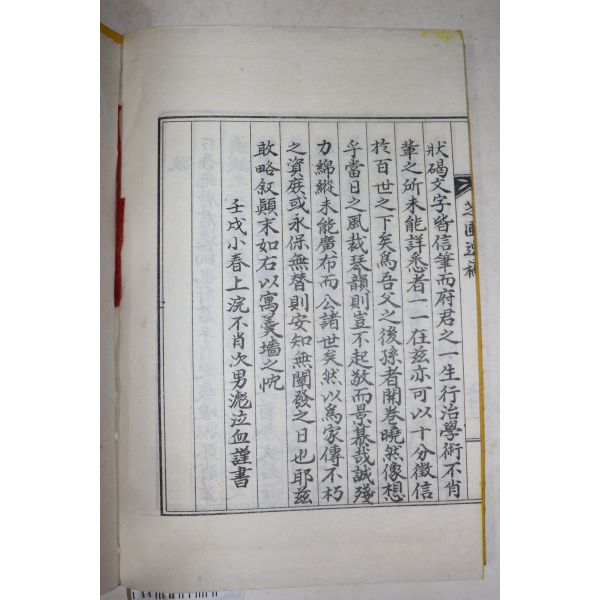 芝圃遺稿
狀碣文字皆信筆而府君之一生行治學術不肖
輩之所未能詳悉者一一在玆亦可以十分徵信
於百世之下矣爲吾父之後孫者開卷曉然像想
乎當日之風裁琴韻則豈不起敬而景慕哉誠殘
力綿縱未能廣布而公諸世矣然以爲家傳不朽
之資庶或永保無替則安知無闡發之日也耶玆
敢略叙顚末如右以寓羹墻之忱
壬戌小春上浣不肖次男滮泣血謹書